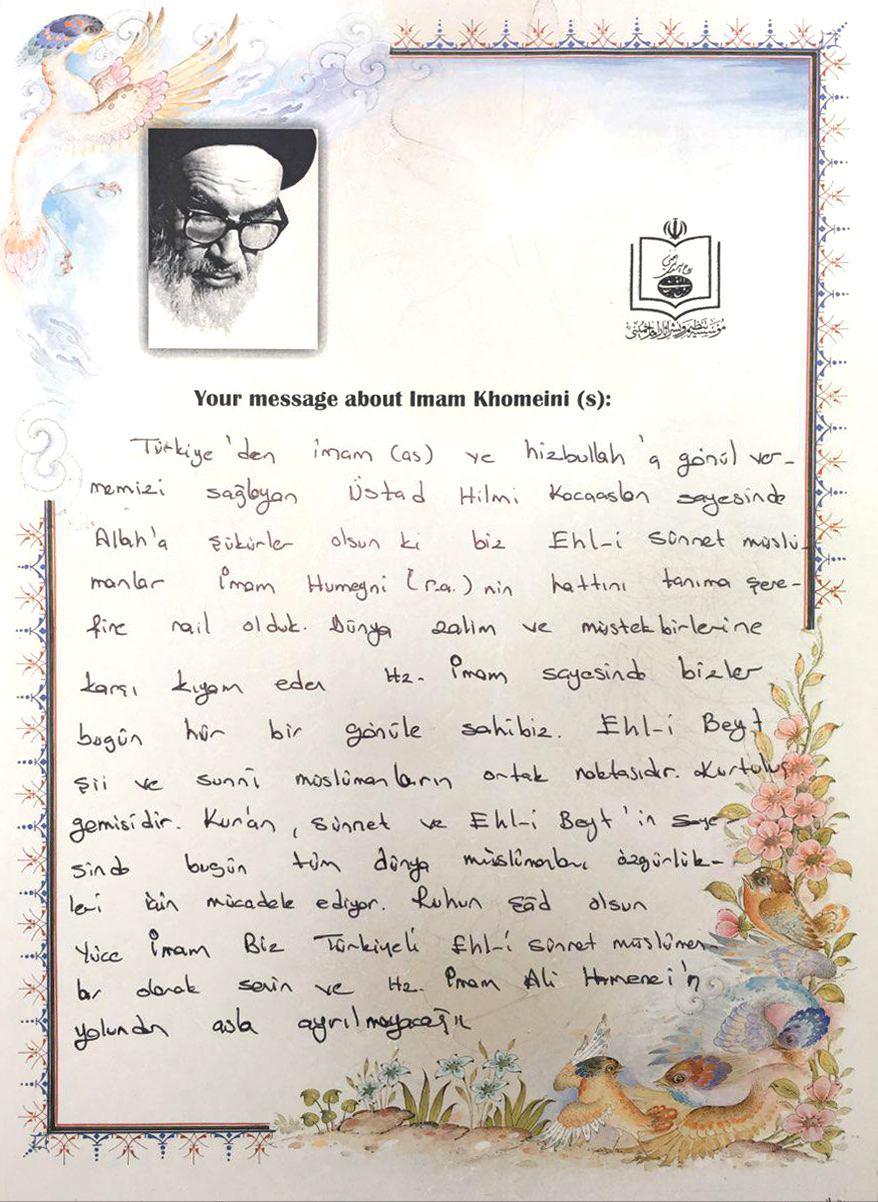 مؤسسه تنظیم و نشر آثار امام خمینی
Your message about Imam Khomeini (s):
Türkiye'den imam (as) ve hizbullah'a gönül ver-
memizi sağlayan Üstad Hilmi Kocaaslan sayesinde
Allah'a şükürler olsun ki biz Ehl-i Sünnet müslü-
manlar İmam Humeyni (r.a.) nin hattını tanıma şere-
fine nail olduk. Dünya zalim ve müstekbirlerine
karşı kıyam eden Hz. İmam sayesinde bizler
bugün hür bir gönüle sahibiz. Ehl-i Beyt
şii ve sunnî müslümanların ortak noktasıdır. Kurtuluş
gemisidir. Kur'an, sünnet ve Ehl-i Beyt'in saye-
sinde bugün tüm dünya müslümanları özgürlük-
leri için mücadele ediyor. Ruhun şâd olsun
Yüce İmam Biz Türkiyeli Ehl-i sünnet müslüman-
lar olarak senin ve Hz. İmam Ali Hamenei'n
yolundan asla ayrılmayacağız